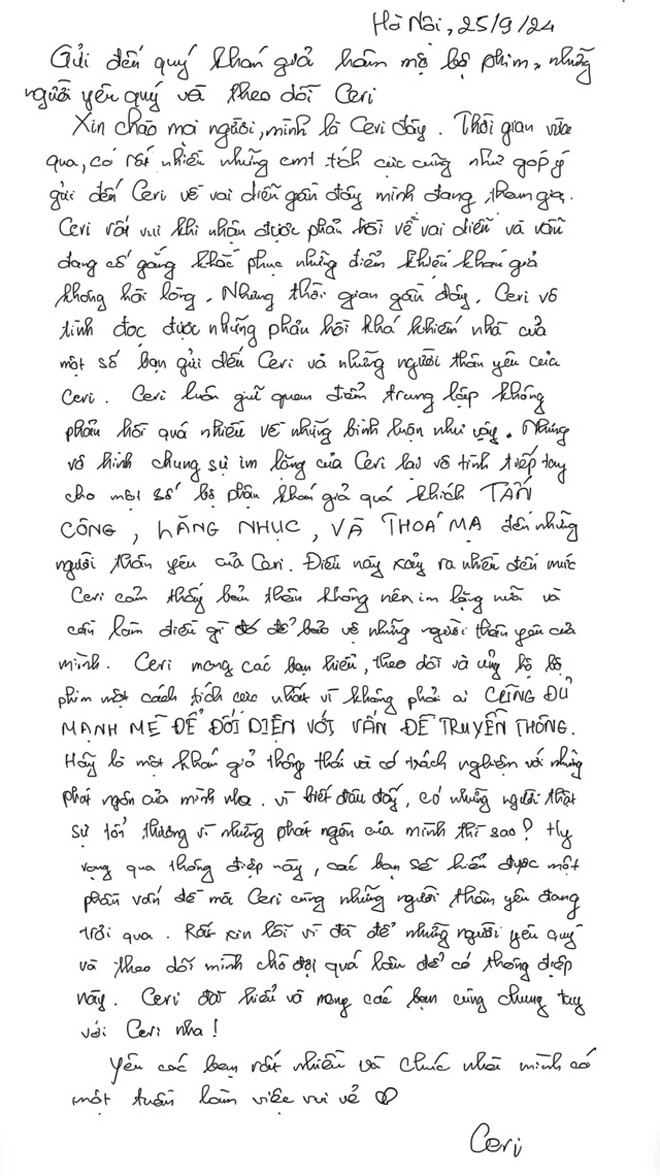 Hà Nội, 25/9/24
Gửi đến quý khán giả hâm mộ bộ phim, những
người yêu quý và theo dõi Ceri
Xin chào mọi người, mình là Ceri đây. Thời gian vừa
qua, có rất nhiều những cmt tích cực cũng như góp ý
gửi đến Ceri về vai diễn gần đây mình đang tham gia.
Ceri rất vui khi nhận được phản hồi về vai diễn và vẫn
đang cố gắng khắc phục những điểm khiến khán giả
không hài lòng. Nhưng thời gian gần đây, Ceri vô
tình đọc được những phản hồi khá khiếm nhã của
một số bạn gửi đến Ceri và những người thân yêu của
Ceri. Ceri luôn giữ quan điểm trung lập không
phản hồi quá nhiều về những bình luận như vậy. Nhưng
vô hình chung sự im lặng của Ceri lại vô tình tiếp tay
cho một số bộ phận khán giả quá khích TẤN
CÔNG, LĂNG NHỤC, VÀ THOÁ MẠ đến những
người thân yêu của Ceri. Điều này xảy ra nhiều đến mức
Ceri cảm thấy bản thân không nên im lặng nữa và
cần làm điều gì đó để bảo vệ những người thân yêu của
mình. Ceri mong các bạn hiểu, theo dõi và ủng hộ bộ
phim một cách tích cực nhất vì không phải ai CŨNG ĐỦ
MẠNH MẼ ĐỂ ĐỐI DIỆN VỚI VẤN ĐỀ TRUYỀN THÔNG.
Hãy là một khán giả thông thái và có trách nghiệm với những
phát ngôn của mình nha. Vì biết đâu đấy, có những người thật
sự tổn thương vì những phát ngôn của mình thì sao? Hy
vọng qua thông điệp này, các bạn sẽ hiểu được một
phần vấn đề mà Ceri cùng những người thân yêu đang
trải qua. Rất xin lỗi vì đã để những người yêu quý
và theo dõi mình chờ đợi quá lâu để có thông điệp
này. Ceri đã hiểu và mong các bạn cùng chung tay
với Ceri nha!
Yêu các bạn rất nhiều và chúc nhà mình có
một tuần làm việc vui vẻ ♡
Ceri